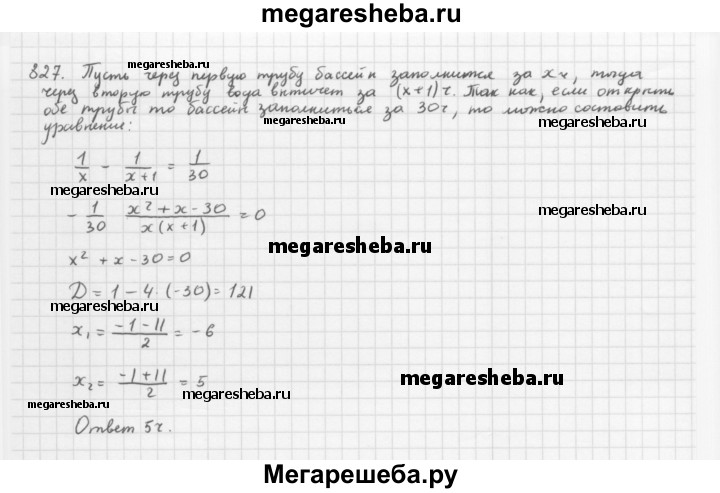 megaresheba.ru
827. Пусть через первую трубу бассейн заполнится за x ч, тогда
megaresheba.ru
через вторую трубу вода вытечет за (x+1) ч. Так как, если открыть
обе трубы то бассейн заполниться за 30 ч, то можно составить
megaresheba.ru
уравнение:
1/x - 1/(x+1) = 1/30
megaresheba.ru
- 1/30 (x² + x - 30)/(x(x+1)) = 0
megaresheba.ru
megaresheba.ru
x² + x - 30 = 0
D = 1 - 4·(-30) = 121
megaresheba.ru
x₁ = (-1 - 11)/2 = -6
x₂ = (-1 + 11)/2 = 5
megaresheba.ru
megaresheba.ru
megaresheba.ru
Ответ 5 ч.
Мегарешеба.ру